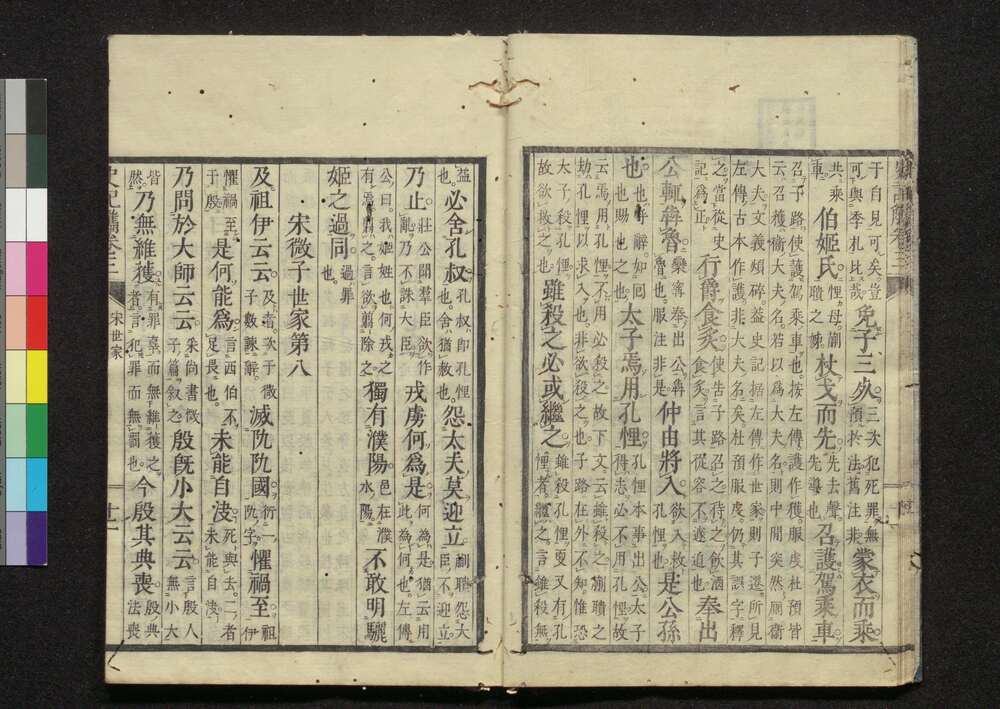 于自見可矣豈可與季札比哉 免子三死。三次犯死罪無預於法舊注非 蒙衣而乘
共乘車。伯姬氏 悝母蒯聵之姊 杖戈而先 先去聲。先導也。召護駕乘車
召子路使護駕乘車也按左傳作護作獲服虔杜預皆
云召獲衞大夫名若以爲大夫名則中間突然厠衞
大夫文義頗碎益史記据左傳作世家則子遷所見
左傳古本作護非大夫名矣杜預服虔仍其誤字釋
之當從史記爲正 行爵食炙 使告子路召之待之飲酒食炙言其從容不遽迫也 奉出
公輒奔魯 欒寗奉出公奔魯也服注非是 仲由將入 欲入救孔悝也。是公孫
也。也呼辭如囘也賜也之也 太子焉用孔悝 孔悝本事出公太子得志必不用孔悝故
云焉用孔悝不用必殺之故下文云雖殺之蒯聵之
劫孔悝以求入也非欲殺之也子路在外不知惟恐
太子殺孔悝故欲救之也 雖殺之必或繼之 雖殺孔悝更又有孔悝者繼之言雖殺無
益也。必舍孔叔 孔叔卽孔悝也舍猶赦也 怨大夫莫迎立 蒯聵怨大臣不迎立
乃止 莊公聞羣臣欲作亂乃不誅大臣 戎虜何爲是 何爲是猶云用此爲何也左傳
公曰我姬姓也何戎之有焉翦之言欲翦除之 獨有濮陽 邑在濮水陽 不敢明驪
姬之過同 過罪也。
宋微子世家第八
及祖伊云云 及者次于微子數諫辭 滅阢阢國 衍一阢字。懼禍至。祖伊
懼禍至于殷 是何能爲 言西伯不足畏也。未能自决 死與去二者未能自决
乃問於大師云云 采尚書微子篇叙之 殷旣小大云云 言殷人無小大
皆然 乃無維獲 有罪辜而無維獲之者言犯罪而無罰也。今殷其典喪 殷典法喪
宋世家
十一